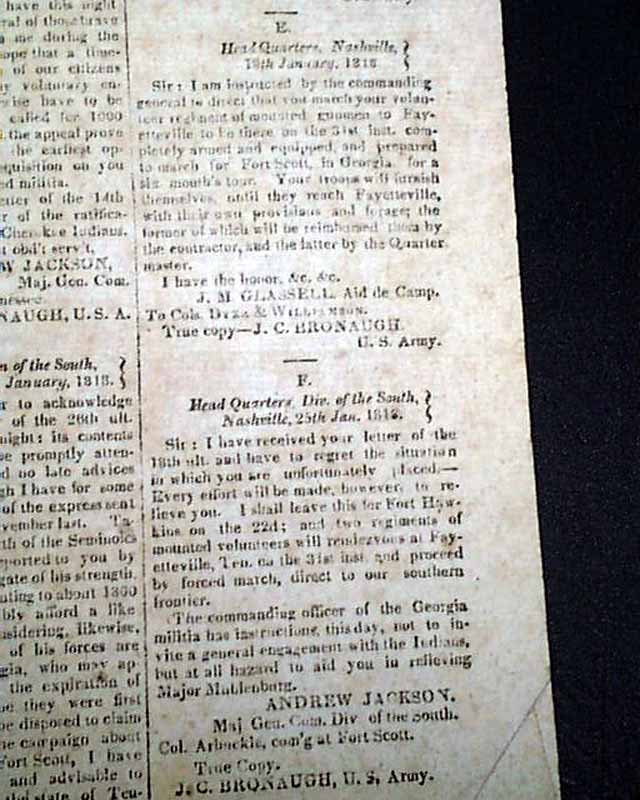 have this night
eral of those brave
me during the
ope that a time-
of our citizens
y voluntary en-
wise have to be
called for 1000
the appeal prove
the earliest op-
quisition on you
ed militia.
etter of the 14th
r of the ratifica-
Cherokee Indians.
t obd't serv't,
W JACKSON,
Maj. Gen. Com.
nessee.
NAUGH, U.S. A.
n of the South,
January, 1818.
r to acknowledge
of the 26th ult.
night: its contents
be promptly atten-
d no late advices
gh I have for some
of the express sent
vember last. Ta-
th of the Seminoles
eported to you by
gate of his strength,
uting to about 1300
bly afford a like
nsidering, likewise,
of his forces are
gia, who may ap-
the expiration of
e they were first
be disposed to claim
he campaign about
Fort Scott, I have
and advisable to
the state of Ten-
E.
Head Quarters, Nashville,
19th January, 1818
Sir: I am instructed by the commanding
general to direct that you march your volun-
teer regiment of mounted gunmen to Fay-
etteville to be there on the 31st inst. com-
pletely armed and equipped, and prepared
to march for Fort Scott, in Georgia, for a
six month's tour. Your troops will furnish
themselves, until they reach Fayetteville,
with their own provisions and forage; the
former of which will be reimbursed them by
the contractor, and the latter by the Quarter
master.
I have the honor, &c. &c.
J. M. GLASSELL, Aid de Camp.
To Cols. DYER & WILLIAMSON.
True copy—J. C. BRONAUGH,
U. S. Army.
F.
Head Quarters, Div. of the South,
Nashville, 25th Jan. 1818.
Sir: I have received your letter of the
18th ult. and have to regret the situation
in which you are unfortunately placed.—
Every effort will be made, however, to re-
lieve you. I shall leave this for Fort Haw-
kins on the 22d; and two regiments of
mounted volunteers will rendezvous at Fay-
etteville, Ten. on the 31st inst. and proceed
by forced march, direct to our southern
frontier.
The commanding officer of the Georgia
militia has instructions, this day, not to in-
vite a general engagement with the Indians,
but at all hazard to aid you in relieving
Major Muhlenburg.
ANDREW JACKSON.
Maj Gen. Com. Div of the South.
Col. Arbuckle, com'g at Fort Scott.
True Copy.
J. C. BRONAUGH, U. S, Army.